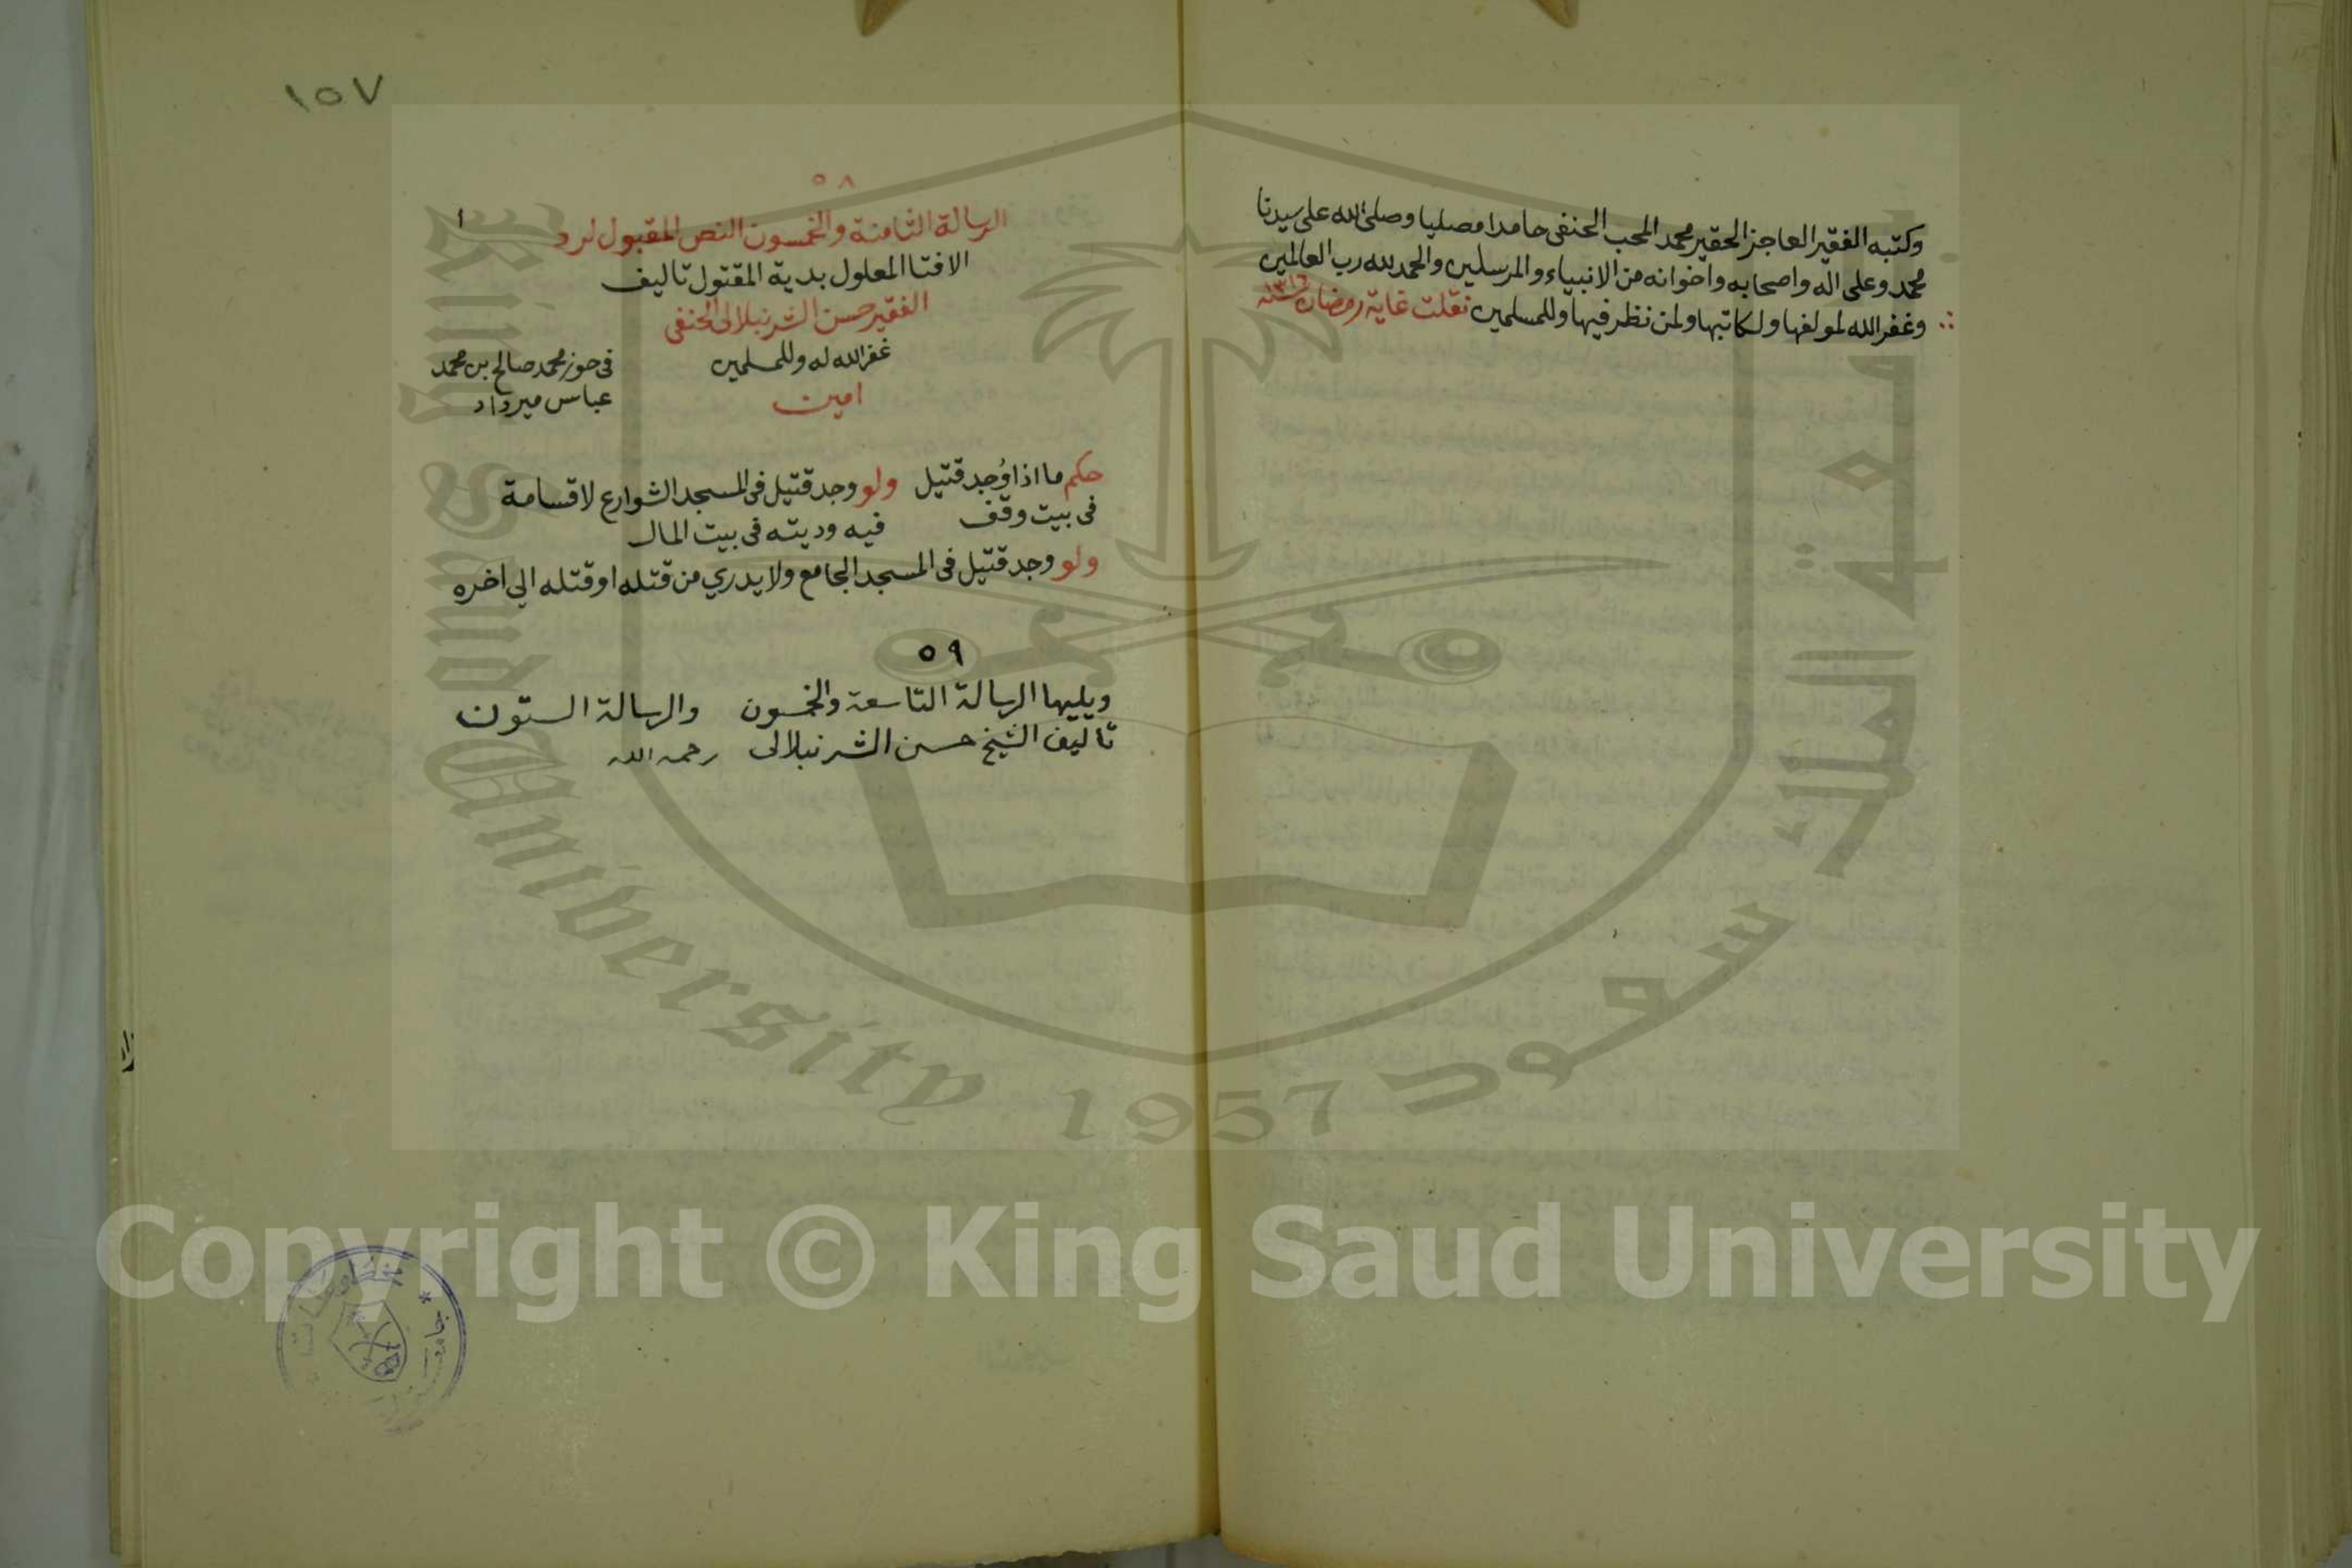 وكتبه الفقير العاجز الحقير محمد المحب الحنفى حامدا مصليا وصلى الله على سيدنا
محمد وعلى اله واصحابه واخوانه من الانبياء والمرسلين والحمد لله رب العالمين
وغفر الله لمولفها ولكاتبها ولمن نظر فيها وللمسلمين نقلت غاية رمضان سنة ١٣١٦
١٥٧
٥٨
١
الرسالة الثامنة والخمسون النص المقبول لرد
الافتا المعلول بدية المقتول تاليف
الفقير حسن الشرنبلالى الحنفى
غفر الله له وللمسلمين
امين
فى حوز محمد صالح بن محمد
عباس ميرداد
حكم ما اذا وُجد قتيل
فى بيت وقف
ولو وجد قتيل فى المسجد الشوارع لا قسامة
فيه وديته فى بيت المال
ولو وجد قتيل فى المسجد الجامع ولا يدري من قتله او قتله الي اخره
٥٩
ويليها الرسالة التاسعة والخمسون والرسالة الستون
تاليف الشيخ حسن الشرنبلالى رحمه الله
King Saud University 1957
الملك سعود
Copyright © King Saud University